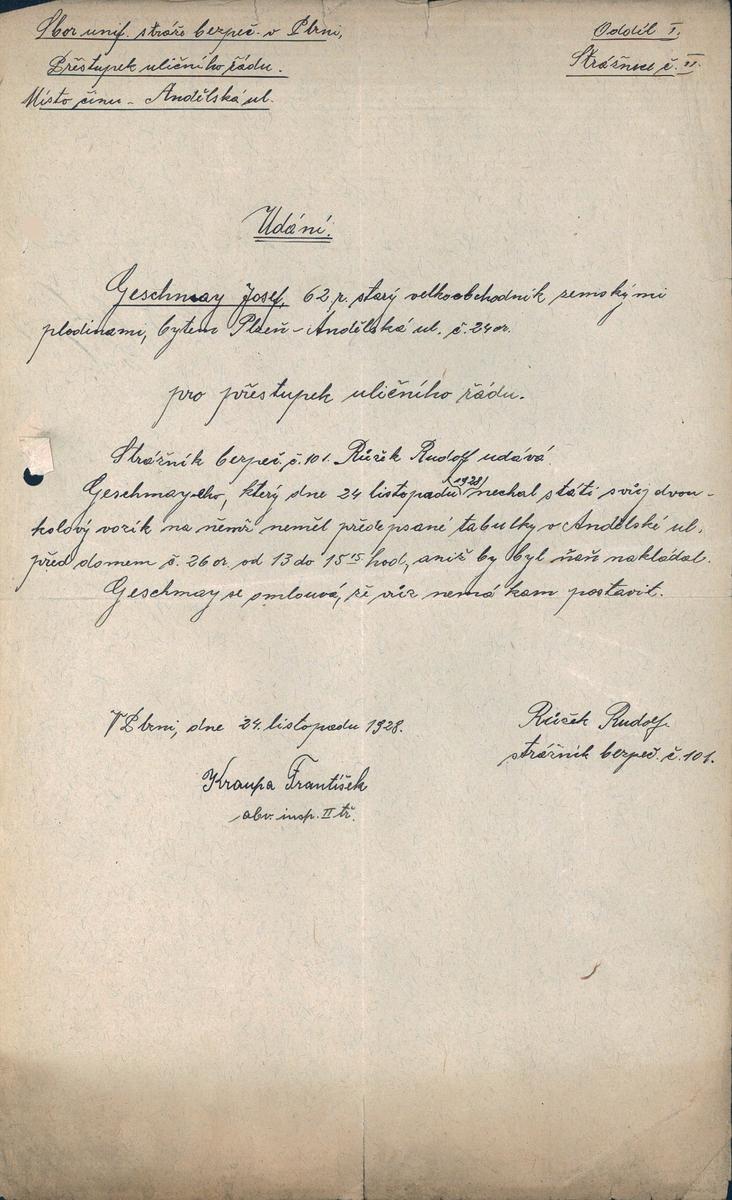 Sbor unif. stráže bezpeč. v Plzni,
Oddíl I.
Přestupek uličního řádu.
Strážnice č. II.
Místo činu - Andělská ul.
Udání.
Geschmay Josef, 62 r. starý velkoobchodník zemskými
plodinami, bytem Plzeň - Andělská ul. č. 24 or.
pro přestupek uličního řádu.
Strážník bezpeč. č. 101. Růžek Rudolf udává
Geschmay-eho, který dne 24 listopadu (1928) nechal státi svůj dvou-
kolový vozík na němž neměl předepsané tabulky v Andělské ul.
před domem č. 26 or. od 13 do 15 15 hod, aniž by byl naň nakládal.
Geschmay se omlouvá, že vůz nemá kam postavit.
V Plzni, dne 24. listopadu 1928.
Růžek Rudolf.
strážník bezpeč. č. 101.
Kraupa František
obv. insp. II tř.